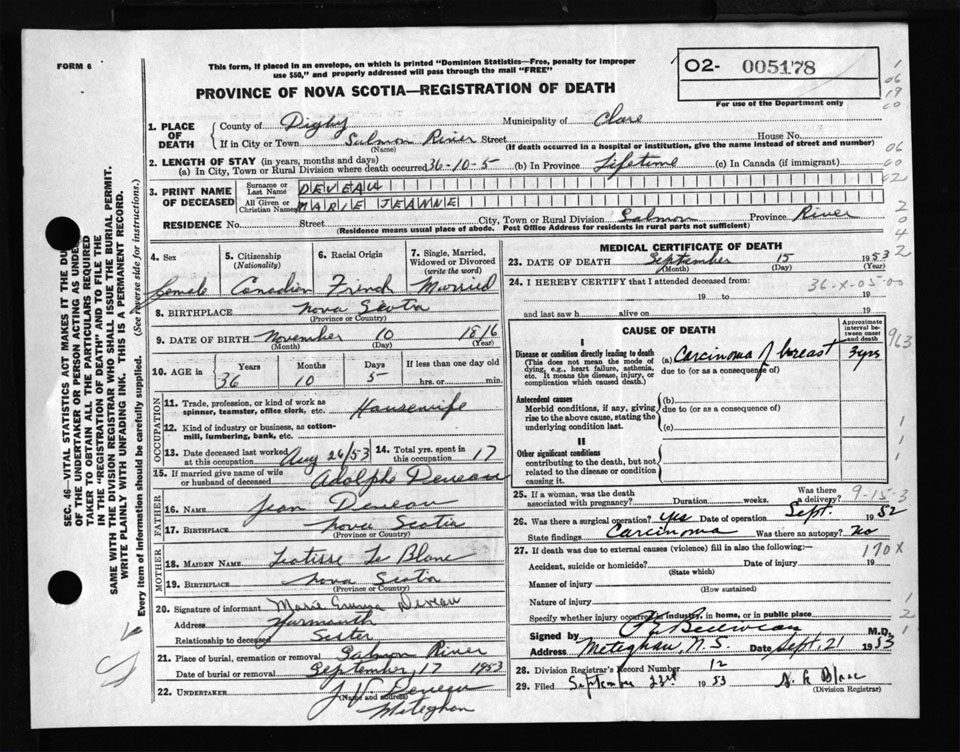 FORM 6
This form, if placed in an envelope, on which is printed "Dominion Statistics—Free, penalty for improper
use $50," and properly addressed will pass through the mail "FREE"
02- 005178
For use of the Department only
PROVINCE OF NOVA SCOTIA—REGISTRATION OF DEATH
1. PLACE OF DEATH { County of Digby Municipality of Clare
If in City or Town Salmon River Street House No.
(Name) (If death occurred in a hospital or institution, give the name instead of street and number)
2. LENGTH OF STAY (in years, months and days)
(a) In City, Town or Rural Division where death occurred 36-10-5 (b) In Province Lifetime (c) In Canada (if immigrant)
3. PRINT NAME OF DECEASED { Surname or Last Name DEVEAU
All Given or Christian Names MARIE JEANNE
RESIDENCE No. Street City, Town or Rural Division Salmon Province River
(Residence means usual place of abode. Post Office Address for residents in rural parts not sufficient)
4. Sex 5. Citizenship (Nationality) 6. Racial Origin 7. Single, Married, Widowed or Divorced (write the word)
female Canadian French Married
8. BIRTHPLACE Nova Scotia
(Province or Country)
9. DATE OF BIRTH November 10 1816
(Month) (Day) (Year)
10. AGE in Years Months Days If less than one day old
36 10 5 hrs. or min.
OCCUPATION
11. Trade, profession, or kind of work as spinner, teamster, office clerk, etc. Housewife
12. Kind of industry or business, as cotton-mill, lumbering, bank, etc.
13. Date deceased last worked at this occupation Aug 26/53 14. Total yrs. spent in this occupation 17
15. If married give name of wife or husband of deceased Adolphe Deveau
FATHER
16. Name Jean Deveau
17. Birthplace Nova Scotia
(Province or Country)
MOTHER
18. Maiden Name Le Blanc
19. Birthplace Nova Scotia
(Province or Country)
20. Signature of informant Marie Emma Deveau
Address Yarmouth
Relationship to deceased Sister
21. Place of burial, cremation or removal Salmon River
Date of burial or removal September 17 1953
22. Undertaker Deveau
(Name and address)
Meteghan
MEDICAL CERTIFICATE OF DEATH
23. DATE OF DEATH September 15 1953
(Month) (Day) (Year)
24. I HEREBY CERTIFY that I attended deceased from: 36-X-05-00
19 to 19
and last saw h alive on 19
CAUSE OF DEATH
Approximate interval between onset and death
I
Disease or condition directly leading to death (a) Carcinoma of breast 3 yrs
(This does not mean the mode of dying, e.g., heart failure, asthenia, etc. It means the disease, injury, or complication which caused death.) due to (or as a consequence of)
Antecedent causes (b)
Morbid conditions, if any, giving rise to the above cause, stating the underlying condition last. due to (or as a consequence of)
(c)
II
Other significant conditions
contributing to the death, but not related to the disease or condition causing it.
25. If a woman, was the death associated with pregnancy? Duration weeks. Was there a delivery?
9-15-3
26. Was there a surgical operation? yes Date of operation Sept. 1952
State findings Carcinoma Was there an autopsy? no
27. If death was due to external causes (violence) fill in also the following:— 170X
Accident, suicide or homicide? Date of injury 19
(State which)
Manner of injury
(How sustained)
Nature of injury
Specify whether injury occurred in industry, in home, or in public place
Signed by M.D.
Address Meteghan, N.S. Date Sept. 21 1953
28. Division Registrar's Record Number 12
29. Filed September 23rd 1953
(Division Registrar)
SEC. 46—VITAL STATISTICS ACT MAKES IT THE DUTY
OF THE UNDERTAKER OR PERSON ACTING AS UNDERTAKER
TO OBTAIN ALL THE PARTICULARS REQUIRED
IN THE "REGISTRATION OF DEATH" AND TO FILE THE
SAME WITH THE DIVISION REGISTRAR WHO SHALL ISSUE THE BURIAL PERMIT.
WRITE PLAINLY WITH UNFADING INK. THIS IS A PERMANENT RECORD.
Every item of information should be carefully supplied. (See reverse side for instructions.)